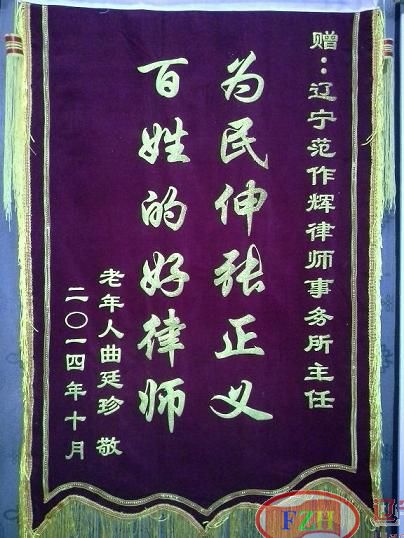 赠：辽宁范作辉律师事务所主任
为民伸张正义
百姓的好律师
老年人曲廷珍 敬
二〇一四年十月
FZH